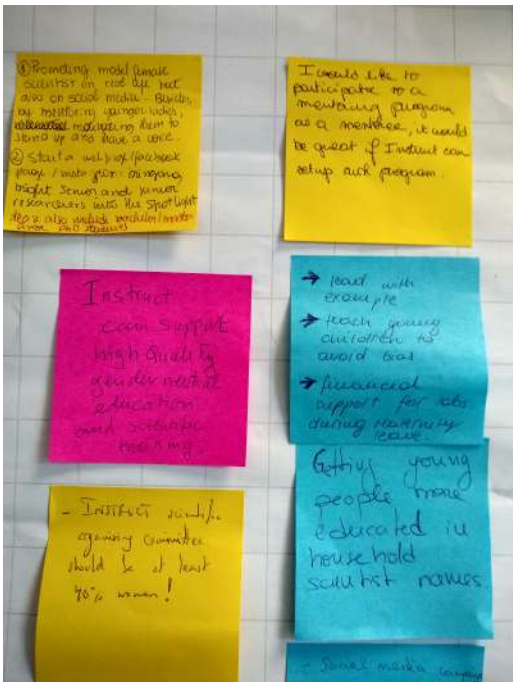 ① Promoting model female
scientist on real eye but
also on social media. Besides,
by mentoring younger ladies,
motivating them to
stand up and have a voice.
② Start a web page/facebook
page / instagram: bringing
bright senior and junior
researchers into the spotlight
also include bachelor/master
and PhD students
I would like to
participate to a
mentoring program
as a mentee, it would
be great if Instruct can
setup such program.
Instruct
can support
high quality
gender neutral
education
and scientific
training.
→ lead with
example
→ teach young
children to
avoid bias
→ financial
support for labs
during maternity
leave.
- INSTRUCT scientific
organising committee
should be at least
40% women!
Getting young
people more
educated in
household
scientist names.
- Social media